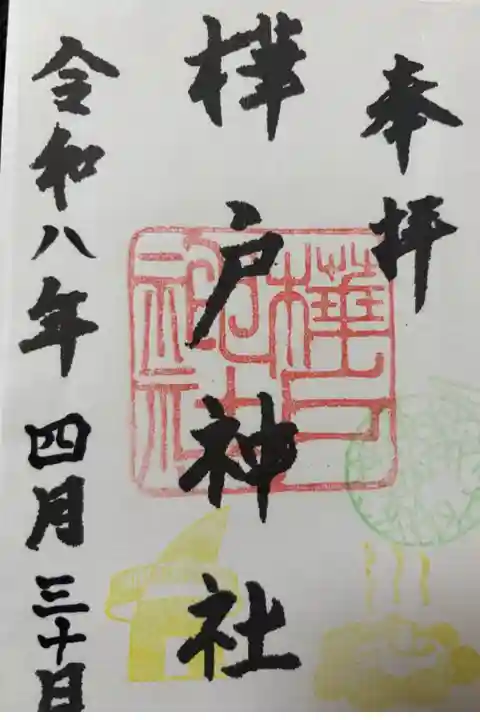 奉拝
樺戸神社
樺戸神社
令和八年四月三十日